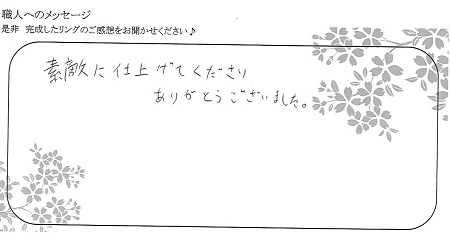 職人へのメッセージ
是非 完成したリングのご感想をお聞かせください♪
素敵に仕上げてください
ありがとうございました。